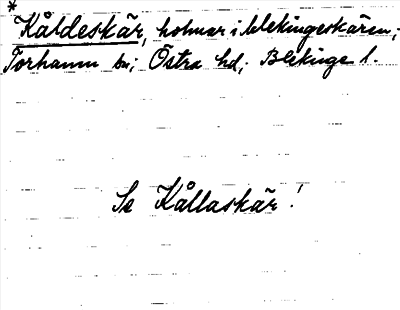 *
Kåldeskär, holmar i Blekingeskären;
Torhamn sn; Östra hd; Blekinge l.
Se Kållaskär!